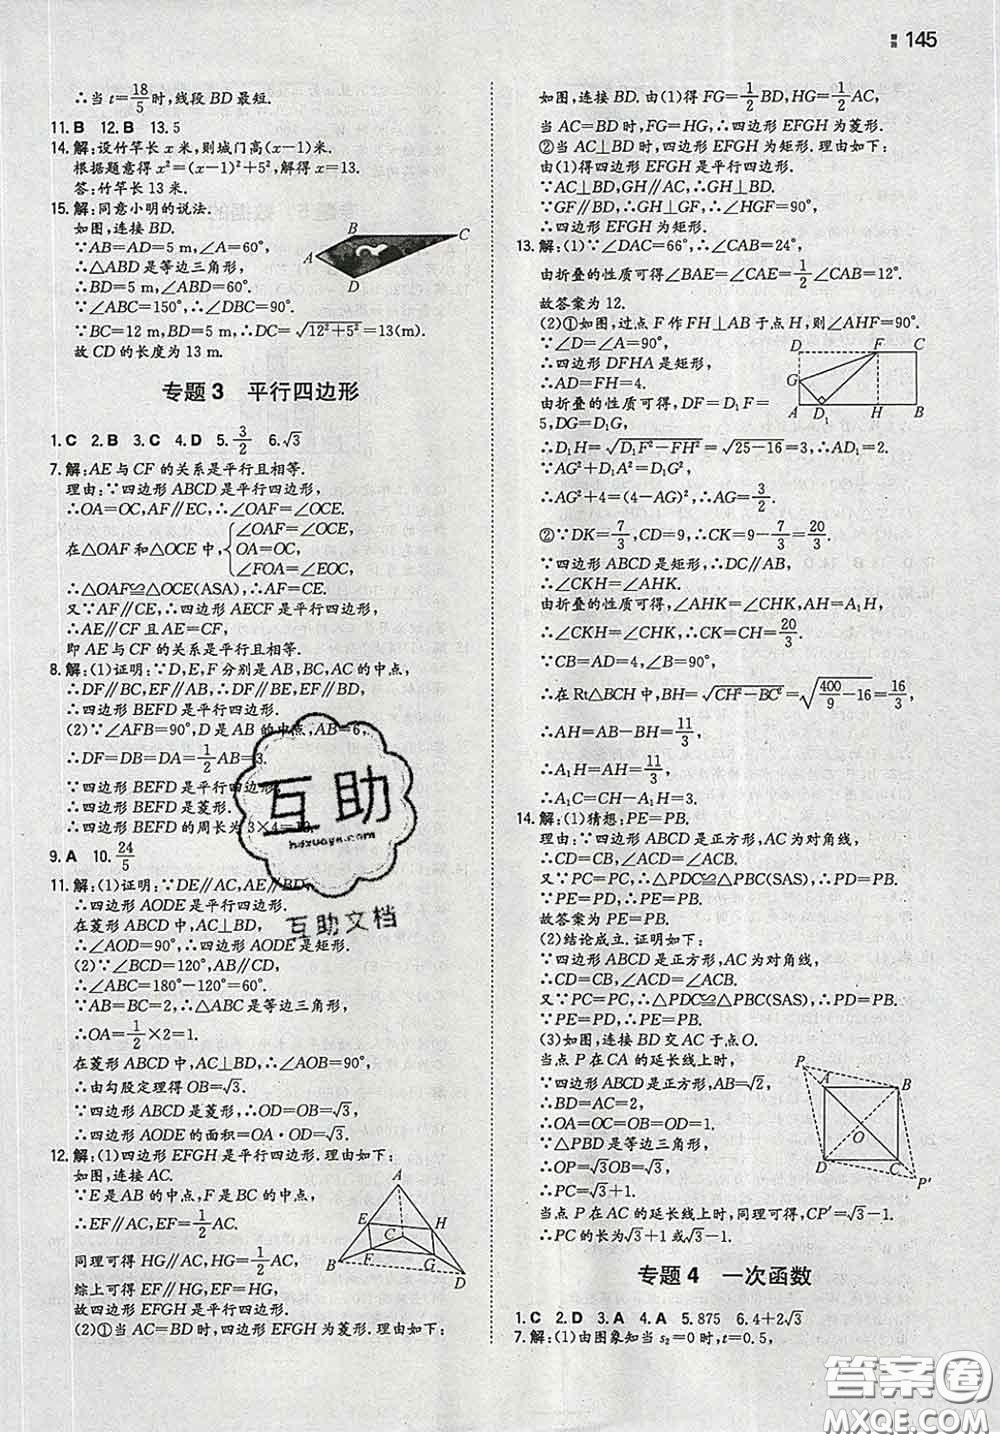 145
∴当 t=18/5时,线段 BD 最短.
11.B 12.B 13.5
14.解:设竹竿长 x 米,则城门高(x−1)米.
根据题意得 x²=(x−1)²+5²,解得 x=13.
答:竹竿长 13 米.
15.解:同意小明的说法.
如图,连接 BD.
∵AB=AD=5 m,∠A=60°,
∴△ABD 是等边三角形,
∴BD=5 m,∠ABD=60°.
∵∠ABC=150°,∴∠DBC=90°.
∵BC=12 m,BD=5 m,∴DC=√(12²+5²)=13(m).
故 CD 的长度为 13 m.
A B C D
专题 3 平行四边形
1.C 2.B 3.C 4.D 5.3/2 6.√3
7.解:AE 与 CF 的关系是平行且相等.
理由:∵四边形 ABCD 是平行四边形,
∴OA=OC,AF∥EC,∴∠OAF=∠OCE.
在△OAF 和△OCE 中,{∠OAF=∠OCE,
OA=OC,
∠FOA=∠EOC,
∴△OAF≌△OCE(ASA),∴AF=CE.
又∵AF∥CE,∴四边形 AECF 是平行四边形,
∴AE∥CF 且 AE=CF,
即 AE 与 CF 的关系是平行且相等.
8.解:(1)证明:∵D,E,F 分别是 AB,BC,AC 的中点,
∴DF∥BC,EF∥AB,∴DF∥BE,EF∥BD,
∴四边形 BEFD 是平行四边形.
(2)∵∠AFB=90°,D 是 AB 的中点,AB=6,
∴DF=DB=DA=1/2AB=3.
∵四边形 BEFD 是平行四边形,
∴四边形 BEFD 是菱形.
∴四边形 BEFD 的周长为 3×4=12.
9.A 10.24/5
11.解:(1)证明:∵DE∥AC,AE∥BD,
∴四边形 AODE 是平行四边形.
在菱形 ABCD 中,AC⊥BD,
∴∠AOD=90°,∴四边形 AODE 是矩形.
(2)∵∠BCD=120°,AB∥CD,
∴∠ABC=180°−120°=60°.
∵AB=BC=2,∴△ABC 是等边三角形,
∴OA=1/2×2=1.
在菱形 ABCD 中,AC⊥BD,∴∠AOB=90°,
∴由勾股定理得 OB=√3.
∵四边形 ABCD 是菱形,∴OD=OB=√3,
∴四边形 AODE 的面积=OA·OD=√3.
12.解:(1)四边形 EFGH 是平行四边形.理由如下:
如图,连接 AC.
∵E 是 AB 的中点,F 是 BC 的中点,
∴EF∥AC,EF=1/2AC.
同理可得 HG∥AC,HG=1/2AC,
综上可得 HG∥EF,HG=EF,
故四边形 EFGH 是平行四边形.
(2)①当 AC=BD 时,四边形 EFGH 为菱形.理由如下:
A E H C B F G D
如图,连接 BD. 由(1)得 FG=1/2BD,HG=1/2AC,
当 AC=BD 时,FG=HG,∴四边形 EFGH 为菱形.
②当 AC⊥BD 时,四边形 EFGH 为矩形.理由如下:
由(1)得四边形 EFGH 是平行四边形.
∵AC⊥BD,GH∥AC,∴GH⊥BD.
∵GF∥BD,∴GH⊥GF,∴∠HGF=90°,
∴四边形 EFGH 为矩形.
13.解:(1)∵∠DAC=66°,∴∠CAB=24°,
由折叠的性质可得∠BAE=∠CAE=1/2∠CAB=12°.
故答案为 12.
(2)①如图,过点 F 作 FH⊥AB 于点 H,则∠AFH=90°.
∵∠D=∠A=90°,
∴四边形 DFHA 是矩形,
∴AD=FH=4.
由折叠的性质可得,DF=D₁F=
5,DG=D₁G,
∴D₁H=√(D₁F²−FH²)=√(25−16)=3,∴AD₁=2.
∵AG²+D₁A²=D₁G²,
∴AG²+4=(4−AG)²,∴AG=3/2.
②∵DK=7/3,CD=9,∴CK=9−7/3=20/3.
∵四边形 ABCD 是矩形,∴DC∥AB,
∴∠CKH=∠AHK.
由折叠的性质可得,∠AHK=∠CHK,AH=A₁H,
∴∠CKH=∠CHK,∴CK=CH=20/3.
∵CB=AD=4,∠B=90°,
∴在 Rt△BCH 中,BH=√(CH²−BC²)=√(400/9−16)=16/3,
∴AH=AB−BH=11/3,
∴A₁H=AH=11/3,
∴A₁C=CH−A₁H=3.
D F C G A D₁ H B
14.解:(1)猜想:PE=PB.
理由:∵四边形 ABCD 是正方形,AC 为对角线,
∴CD=CB,∠ACD=∠ACB.
又∵PC=PC,∴△PDC≌△PBC(SAS),∴PD=PB.
∵PE=PD,∴PE=PB.
故答案为 PE=PB.
(2)结论成立.证明如下:
∵四边形 ABCD 是正方形,AC 为对角线,
∴CD=CB,∠ACD=∠ACB.
又∵PC=PC,∴△PDC≌△PBC(SAS),∴PD=PB.
∵PE=PD,∴PE=PB.
(3)如图,连接 BD 交 AC 于点O.
当点 P 在 CA 的延长线上时,
∵四边形 ABCD 是正方形,AB=√2,
∴BD=AC=2,
∴OA=OC=OB=OD=1.
∵△PBD 是等边三角形,
∴OP=√3OB=√3,
∴PC=√3+1.
当点 P 在 AC 的延长线上时,同理可得,CP′=√3−1,
∴PC 的长为√3+1 或√3−1.
P A B O D C P′
专题 4 一次函数
1.C 2.D 3.A 4.A 5.875 6.4+2√3
7.解:(1)由图象知当 s₂=0 时,t=0.5,
互助
hdzuoye.com
互助文档
答案圈
MXQE.COM